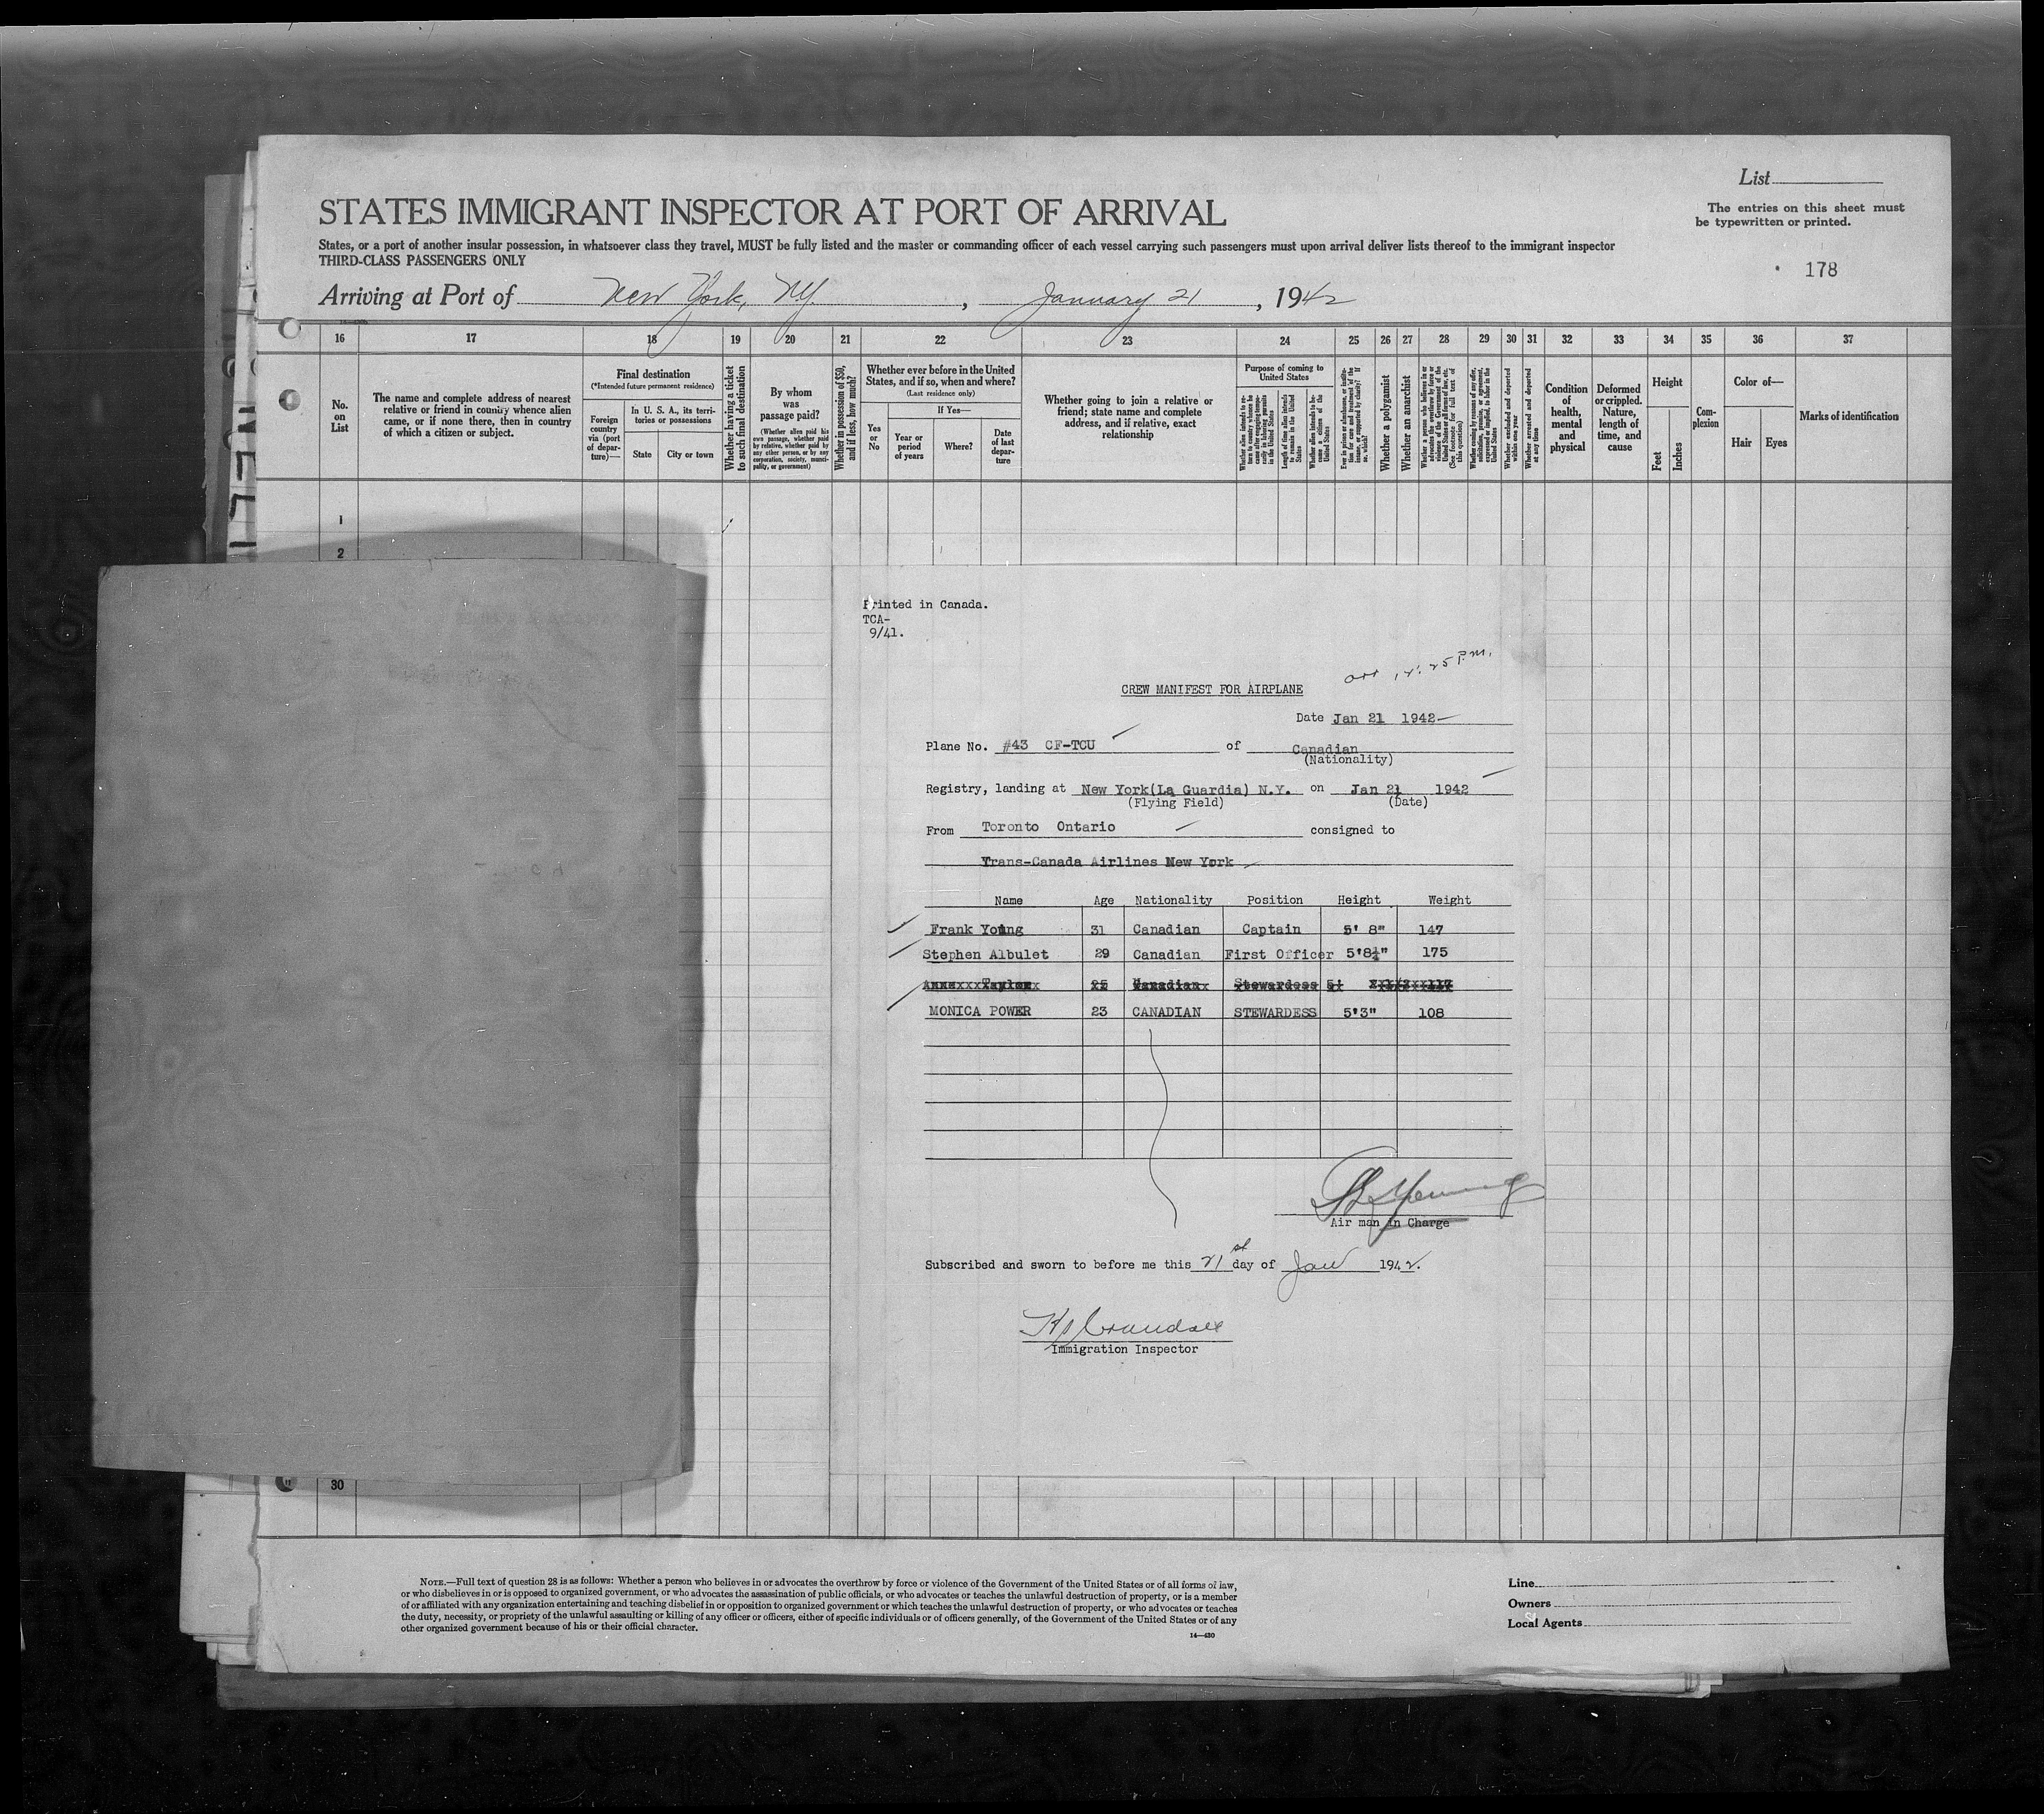 List
STATES IMMIGRANT INSPECTOR AT PORT OF ARRIVAL
The entries on this sheet must
be typewritten or printed.
States, or a port of another insular possession, in whatsoever class they travel, MUST be fully listed and the master or commanding officer of each vessel carrying such passengers must upon arrival deliver lists thereof to the immigrant inspector
THIRD-CLASS PASSENGERS ONLY
178
Arriving at Port of New York, N.Y. , January 21 , 1942
16 17 18 19 20 21 22 23 24 25 26 27 28 29 30 31 32 33 34 35 36 37
No.
on
List
The name and complete address of nearest
relative or friend in country whence alien
came, or if none there, then in country
of which a citizen or subject.
Final destination
(*Intended future permanent residence)
Foreign
country
via (port
of depar-
ture)—
In U. S. A., its terri-
tories or possessions
State City or town
Whether having a ticket
to such final destination
By whom
was
passage paid?
(Whether alien paid his
own passage, whether paid
by relative, whether paid by
any other person, or by any
corporation, society, munici-
pality, or government)
Whether in possession of $50,
and if less, how much?
Whether ever before in the United
States, and if so, when and where?
(Last residence only)
Yes
or
No
If Yes—
Year or
period
of years
Where?
Date
of last
depar-
ture
Whether going to join a relative or
friend; state name and complete
address, and if relative, exact
relationship
Purpose of coming to
United States
Length of time alien intends
to remain in the United
States
Whether alien intends to be-
come a citizen of the
United States
Whether a polygamist
Whether an anarchist
Whether excluded and deported
within one year
Whether arrested and deported
at any time
Condition
of
health,
mental
and
physical
Deformed
or crippled.
Nature,
length of
time, and
cause
Height
Feet
Inches
Com-
plexion
Color of—
Hair Eyes
Marks of identification
1
2
Printed in Canada.
TCA-
9/41.
arr 12:25 P.M.
CREW MANIFEST FOR AIRPLANE
Date Jan 21 1942
Plane No. #43 CF-TCU of Canadian
(Nationality)
Registry, landing at New York(La Guardia) N.Y. on Jan 21 1942
(Flying Field) (Date)
From Toronto Ontario consigned to
Trans-Canada Airlines New York
Name Age Nationality Position Height Weight
Frank Young 31 Canadian Captain 5' 8" 147
Stephen Albulet 29 Canadian First Officer 5'8½" 175
Taylor 25 Canadian Stewardess 5' 117
MONICA POWER 23 CANADIAN STEWARDESS 5'3" 108
Air man in Charge
Subscribed and sworn to before me this 21st day of Jan 1942.
Immigration Inspector
30
NOTE.—Full text of question 28 is as follows: Whether a person who believes in or advocates the overthrow by force or violence of the Government of the United States or of all forms of law,
or who disbelieves in or is opposed to organized government, or who advocates the assassination of public officials, or who advocates or teaches the unlawful destruction of property, or is a member
of or affiliated with any organization entertaining and teaching disbelief in or opposition to organized government or which teaches the unlawful destruction of property, or who advocates or teaches
the duty, necessity, or propriety of the unlawful assaulting or killing of any officer or officers, either of specific individuals or of officers generally, of the Government of the United States or of any
other organized government because of his or their official character.
14—430
Line
Owners
Local Agents